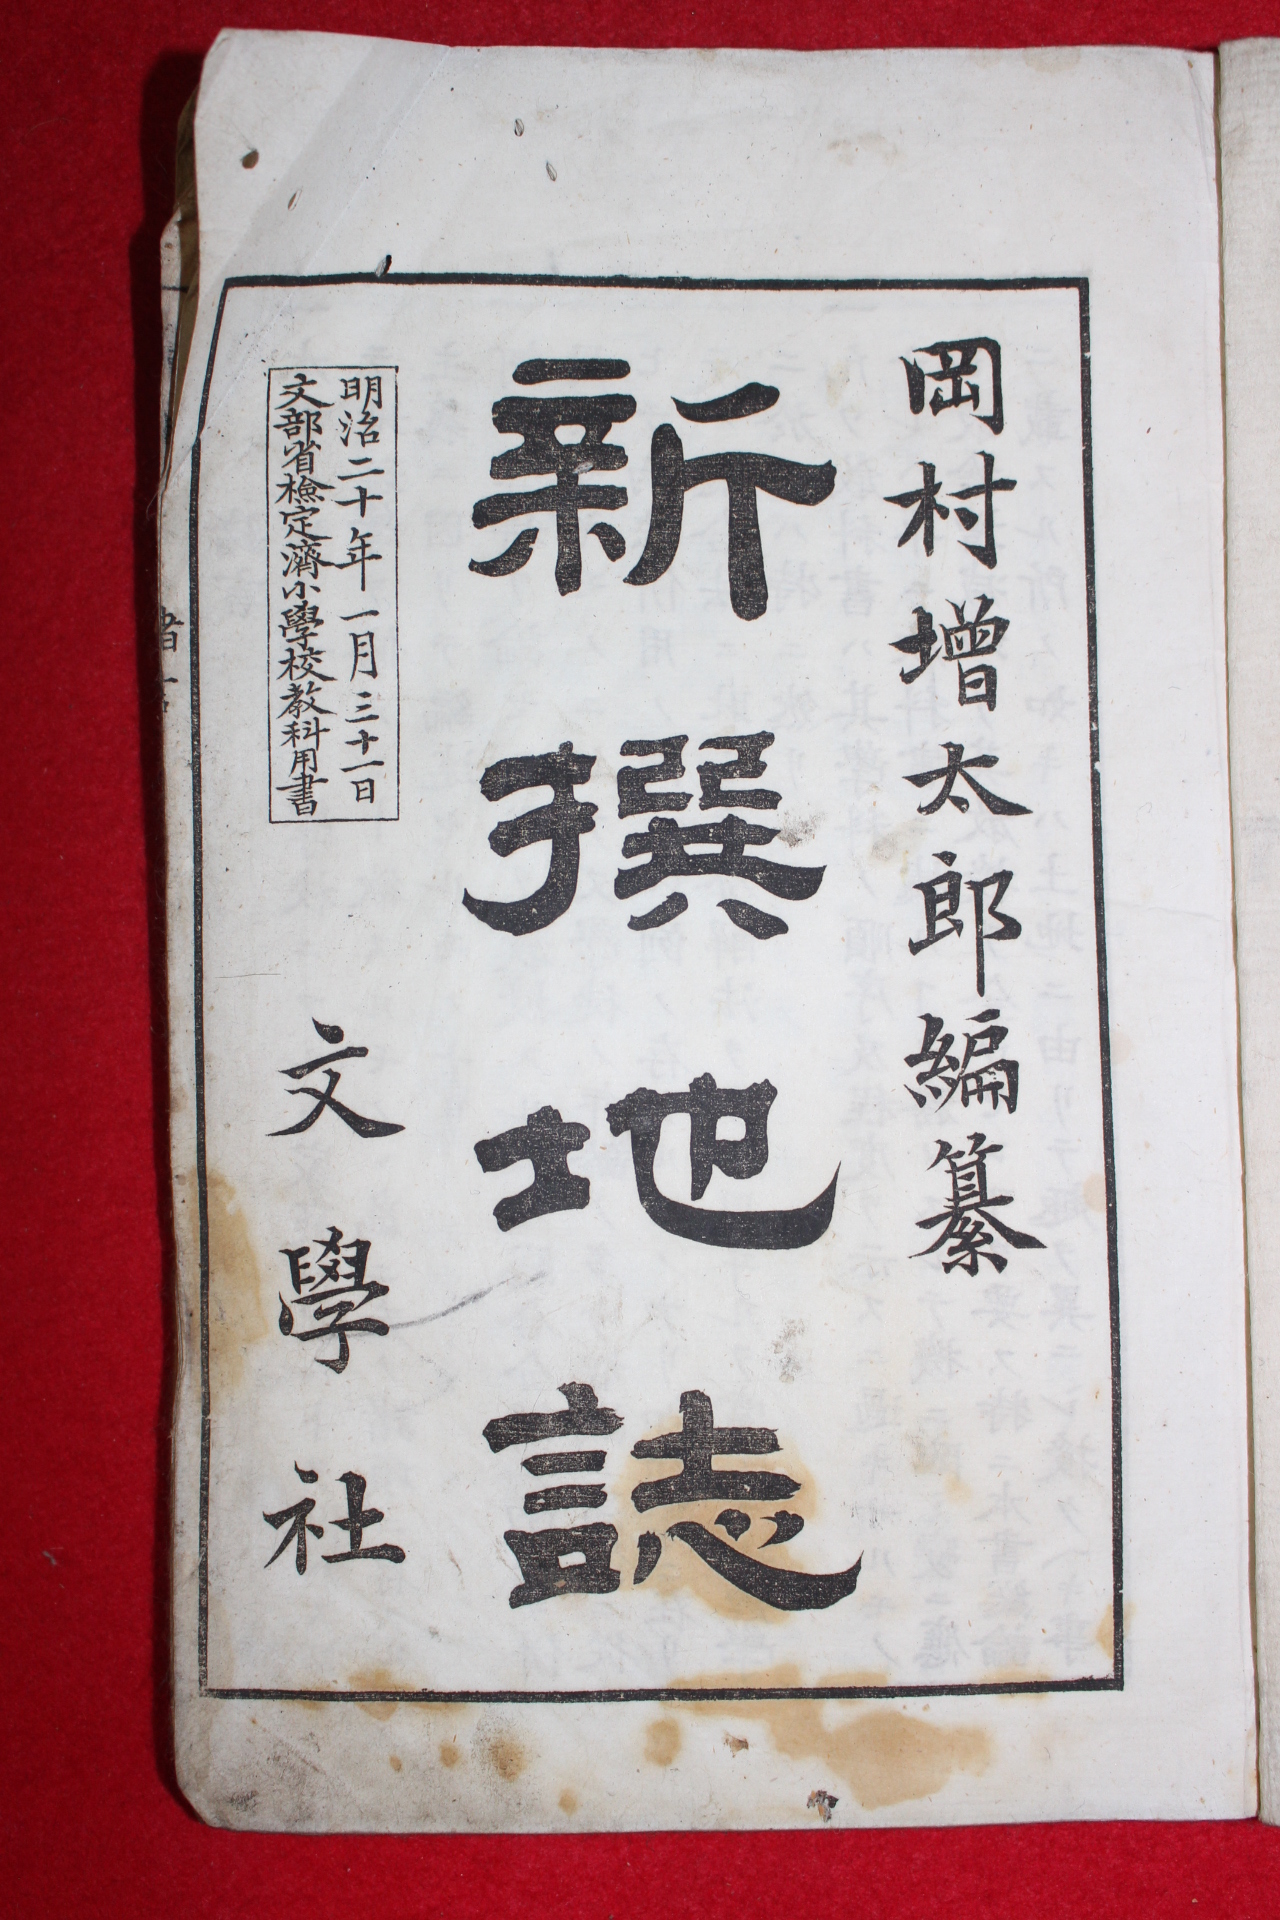 岡村增太郎編纂
新撰地誌
明治二十年一月三十一日
文部省檢定濟小學校教科用書
文學社